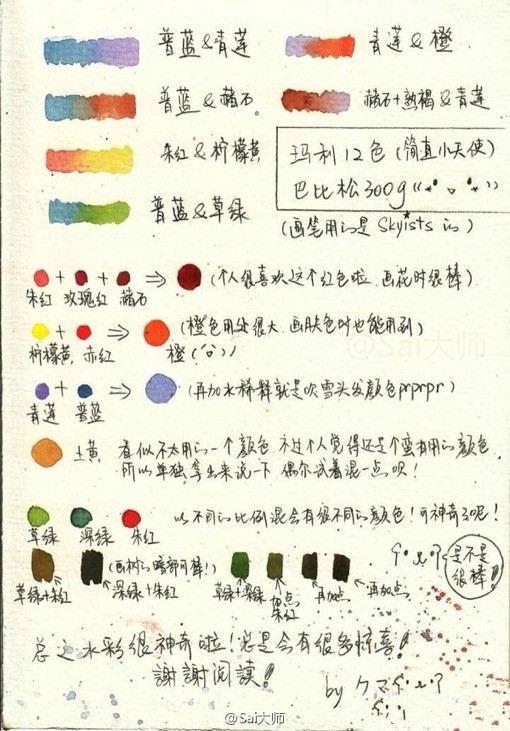 普蓝&青莲
青莲&橙
普蓝&赭石
赭石+熟褐&青莲
朱红&柠檬黄
玛利12色(简直小天使)
巴比松300g
普蓝&草绿
(画笔用的是 Skyists 的)
朱红 + 玫瑰红 + 赭石 ⇒ (个人很喜欢这个红色啦 画花时很棒)
柠檬黄 + 赤红 ⇒ 橙 (橙色用处很大,画肤色时也能用到)
@Sai大师
青莲 + 普蓝 ⇒ (再加水稀释就是吹雪头发颜色prprpr)
土黄 看似不太用的一个颜色 不过个人觉得还是个蛮有用的颜色,
所以单独拿出来说一下 偶尔试着混一点呗!
草绿 深绿 朱红 以不同的比例混会有很不同的颜色!可神奇了呢!
草绿+朱红
(画树的暗部可棒!)
深绿+朱红
草绿+深绿
加点朱红
再加点
再加点
是不是
很棒!
总之水彩很神奇啦!总是会有很多惊喜!
謝謝阅读!
by クマ
@Sai大师